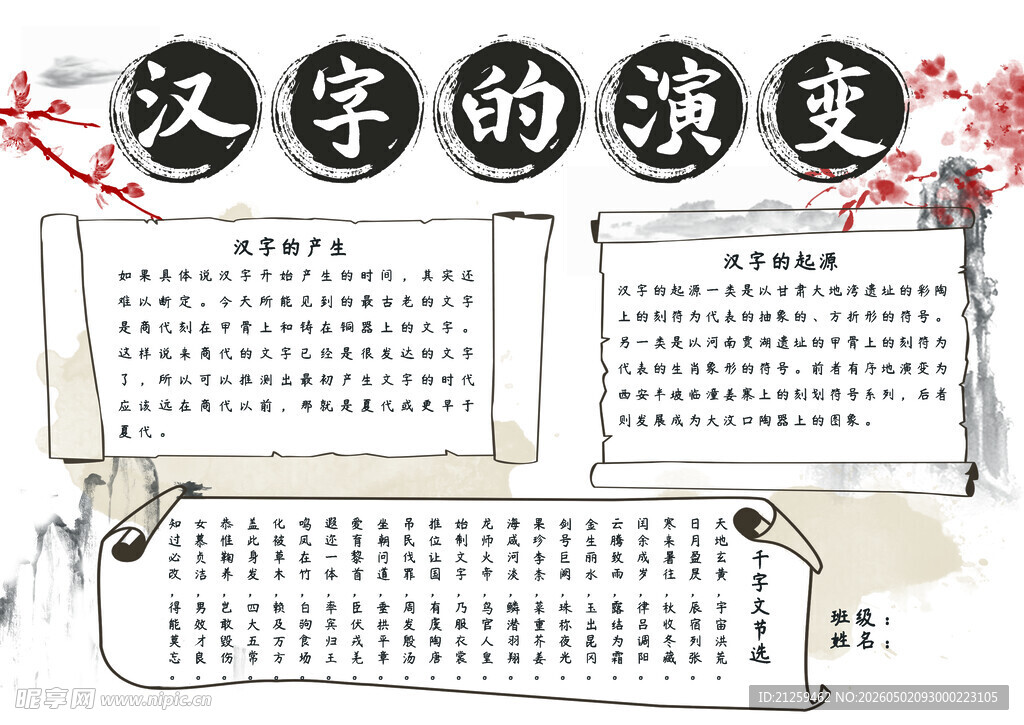 汉字的演变
汉字的产生
如果具体说汉字开始产生的时间，其实还
难以断定。今天所能见到的最古老的文字
是商代刻在甲骨上和铸在铜器上的文字。
这样说来商代的文字已经是很发达的文字
了，所以可以推测出最初产生文字的时代
应该远在商代以前，那就是夏代或更早于
夏代。
汉字的起源
汉字的起源一类是以甘肃大地湾遗址的彩陶
上的刻符为代表的抽象的、方折形的符号。
另一类是以河南贾湖遗址的甲骨上的刻符为
代表的生肖象形的符号。前者有序地演变为
西安半坡临潼姜寨上的刻划符号系列，后者
则发展成为大汶口陶器上的图象。
千字文节选
天地玄黄，宇宙洪荒。
日月盈昃，辰宿列张。
寒来暑往，秋收冬藏。
闰余成岁，律吕调阳。
云腾致雨，露结为霜。
金生丽水，玉出昆冈。
剑号巨阙，珠称夜光。
果珍李柰，菜重芥姜。
海咸河淡，鳞潜羽翔。
龙师火帝，鸟官人皇。
始制文字，乃服衣裳。
推位让国，有虞陶唐。
吊民伐罪，周发殷汤。
坐朝问道，垂拱平章。
爱育黎首，臣伏戎羌。
遐迩一体，率宾归王。
鸣凤在竹，白驹食场。
化被草木，赖及万方。
盖此身发，四大五常。
恭惟鞠养，岂敢毁伤。
女慕贞洁，男效才良。
知过必改，得能莫忘。
班级：
姓名：
昵享网 www.nipic.cn
ID:21259462 NO:20260502093000223105